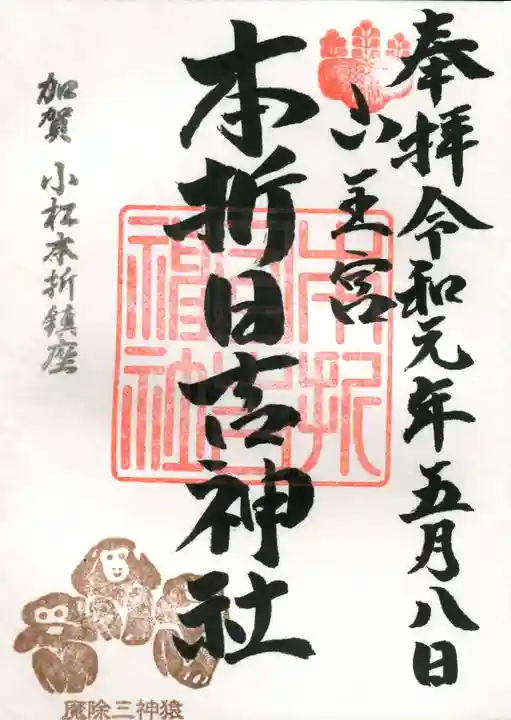 奉拝令和元年五月八日
山王宮
本折日吉神社
加賀 小松本折鎮座
本折日吉神社
魔除三神猿